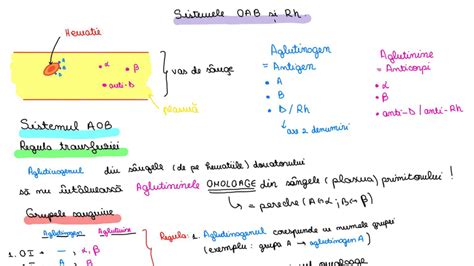 Sistemele OAB și Rh.
Hematie
Aglutinogen
= Antigen
• A
• B
• D / Rh
↳ are 2 denumiri
Aglutinine
= Anticorpi
• α
• β
• anti-D / anti-Rh
A
A
A
• α
• β
• anti-D
vas de sânge
plasmă
Sistemul AOB
Regula transfuziei
Aglutinogenul din sângele (de pe hematiile) donatorului
să nu întâlnească Aglutininele OMOLOAGE din sângele (plasma) primitorului !
↳ = pereche (A↔α ; B↔β)
Grupele sanguine
Aglutinogen Aglutinine
1. O I → — , α, β
Regula: 1. Aglutinogenul corespunde cu numele grupei
(exemplu: grupa A → aglutinogen A)